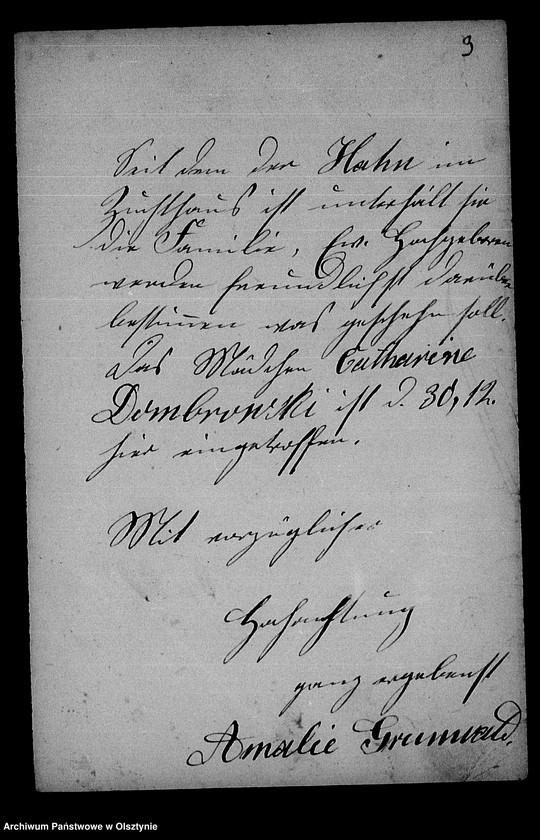 3
Seit dem der Hahn im
Zuchthaus ist unterhält sie
die Familie, Ew. Hochgeboren
werden freundlichst darüber
bestimmen was geschehn soll.
Das Mädchen Catharine
Dombrowski ist d. 30, 12.
hier eingetroffen.
Mit vorzüglicher
Hochachtung
ganz ergebenst
Amalie Grunwald.
Archiwum Państwowe w Olsztynie